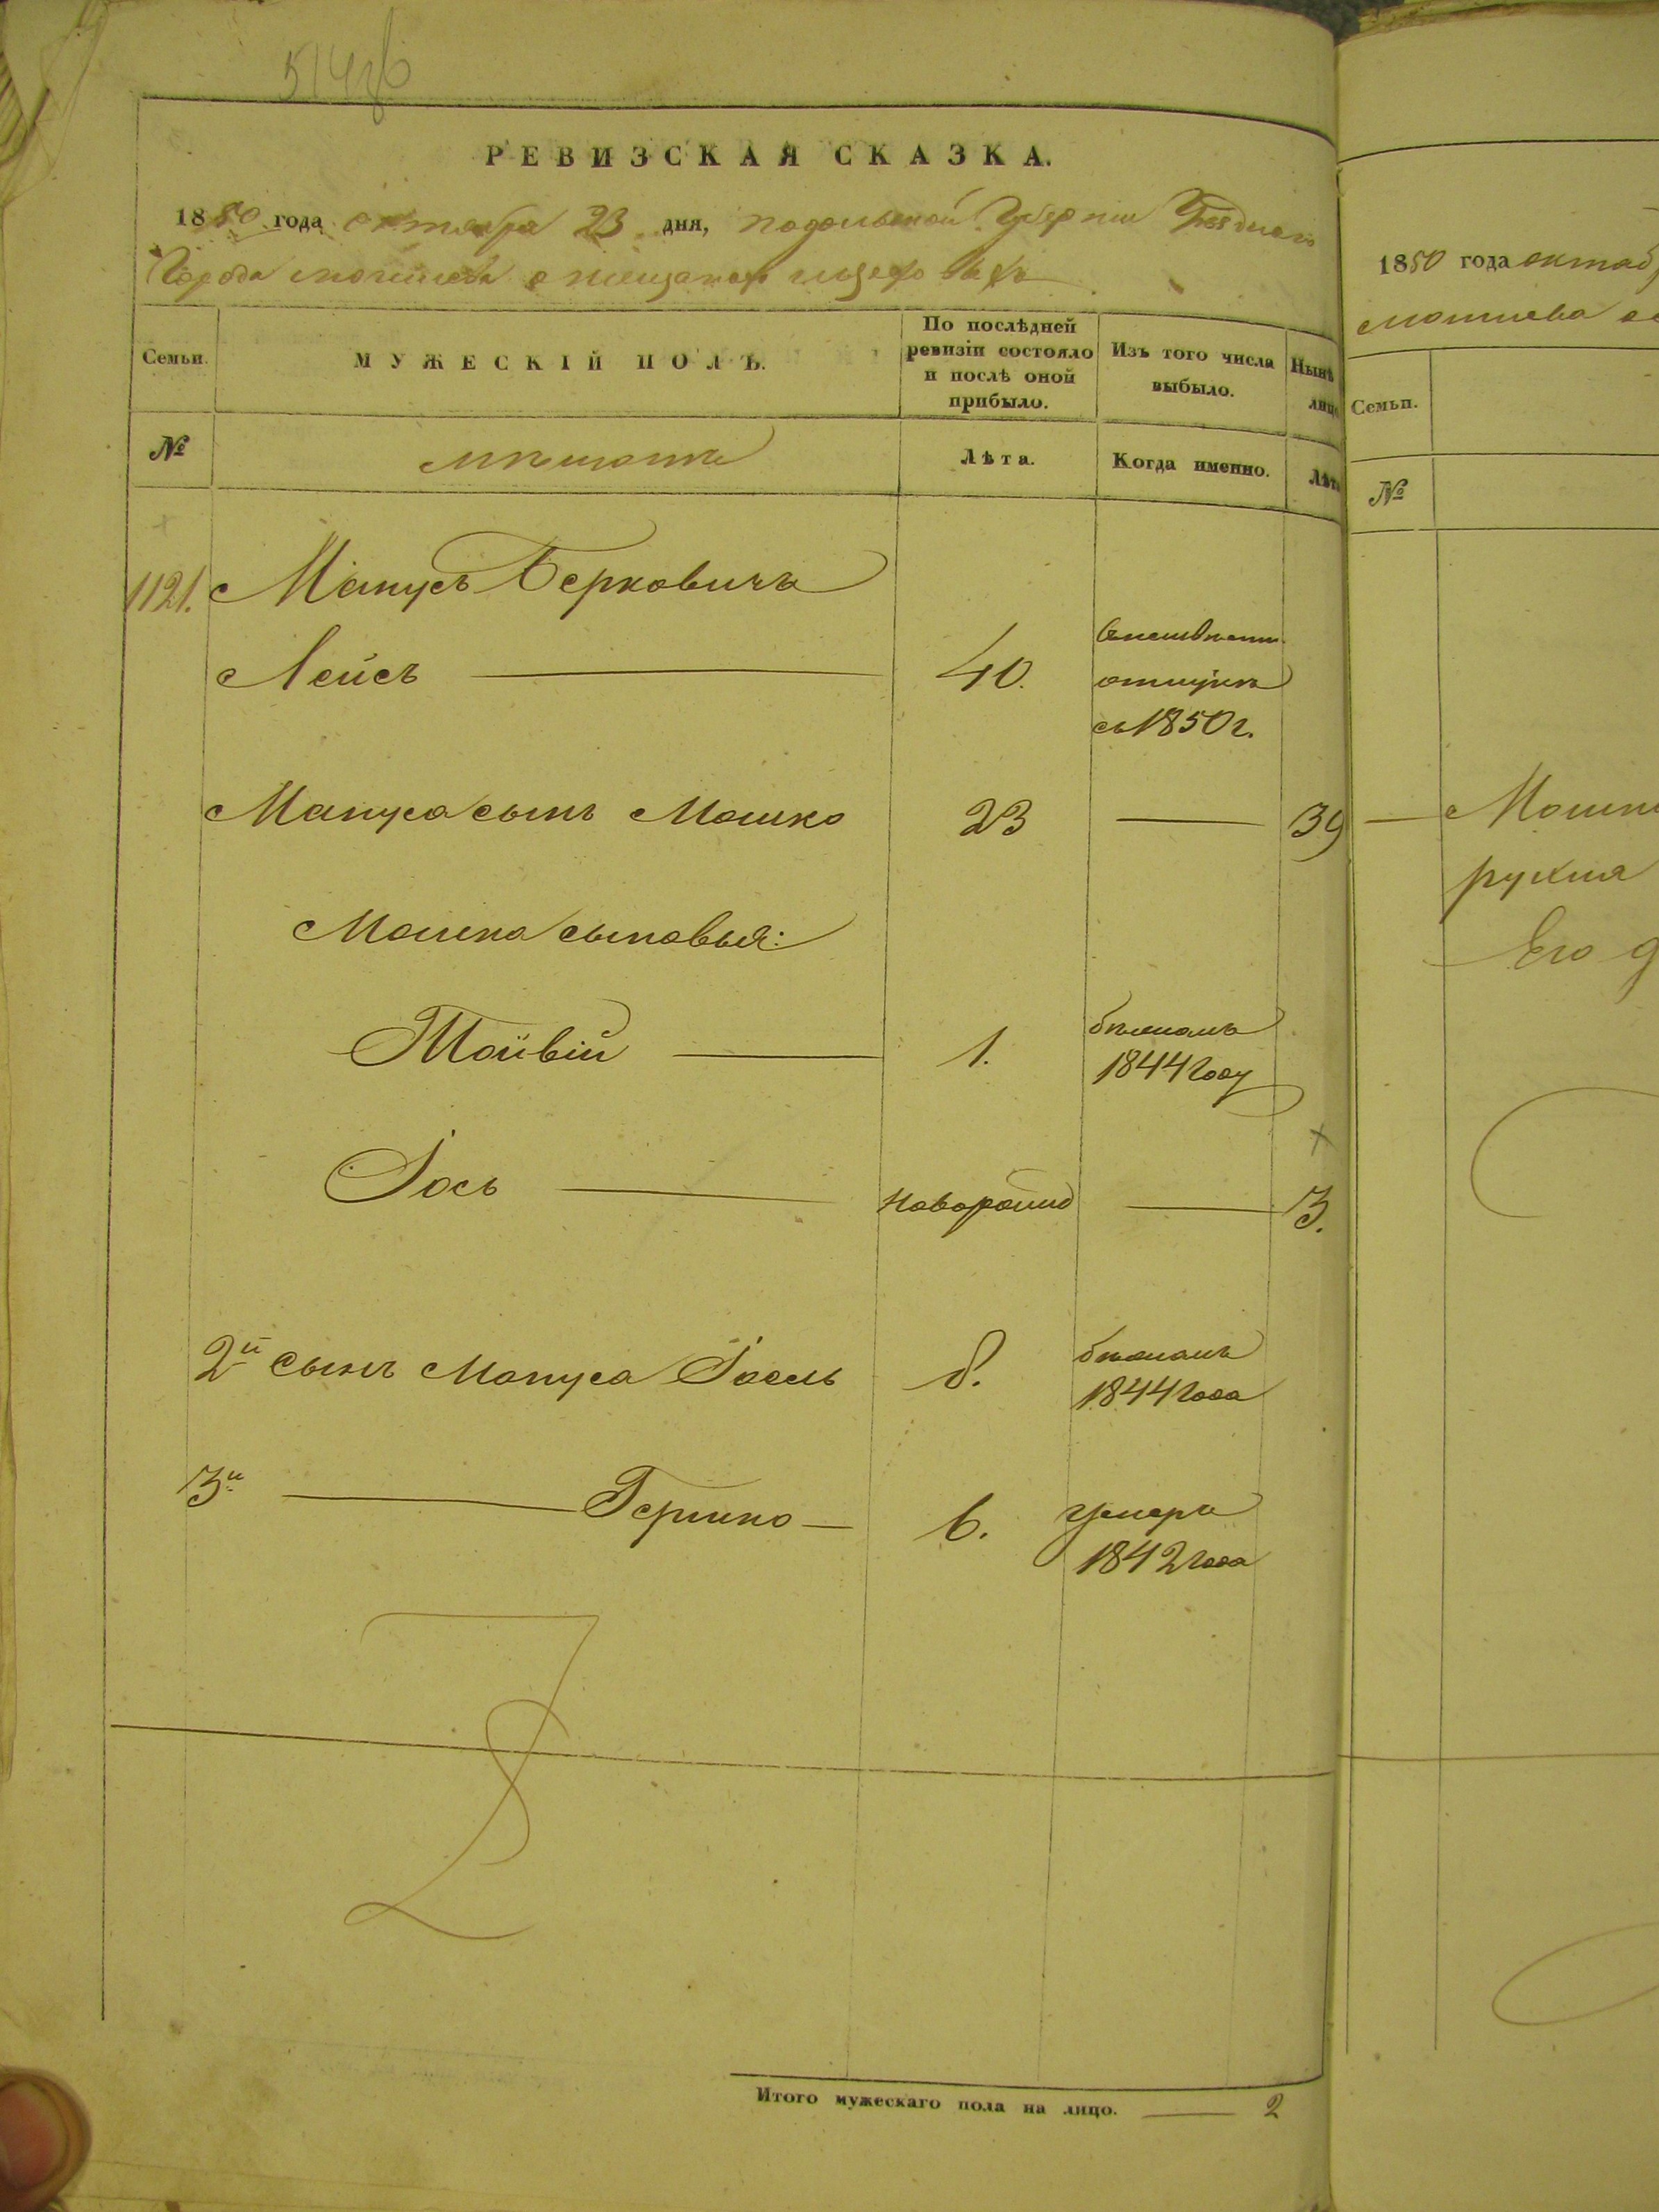 514
РЕВИЗСКАЯ СКАЗКА.
1850 года октября 23 дня, подольской Губернии Уезднаго
Города могилева о мещанах евреяхъ
Семьи.
МУЖЕСКІЙ ПОЛЪ.
По послѣдней ревизіи состояло и послѣ оной прибыло.
Изъ того числа выбыло.
Нынѣ лицо
№
мѣщанъ
Лѣта.
Когда именно.
Лѣта
1121. Манусъ Берковичъ
Лейсъ 40. отлучкѣ
съ 1850 г.
Мануса сынъ Мошко 23 39
Мошка сыновья:
Тойвій 1. бѣжалъ
1844 году
Іось новорожд 3.
2й сынъ Мануса Іосель 8. бѣжалъ
1844 года
3й Гершко 6. умеръ
1842 года
Итого мужескаго пола на лицо. 2
1850 года октяб
могилева
Семьи.
№
Мошк
рухля
Его д